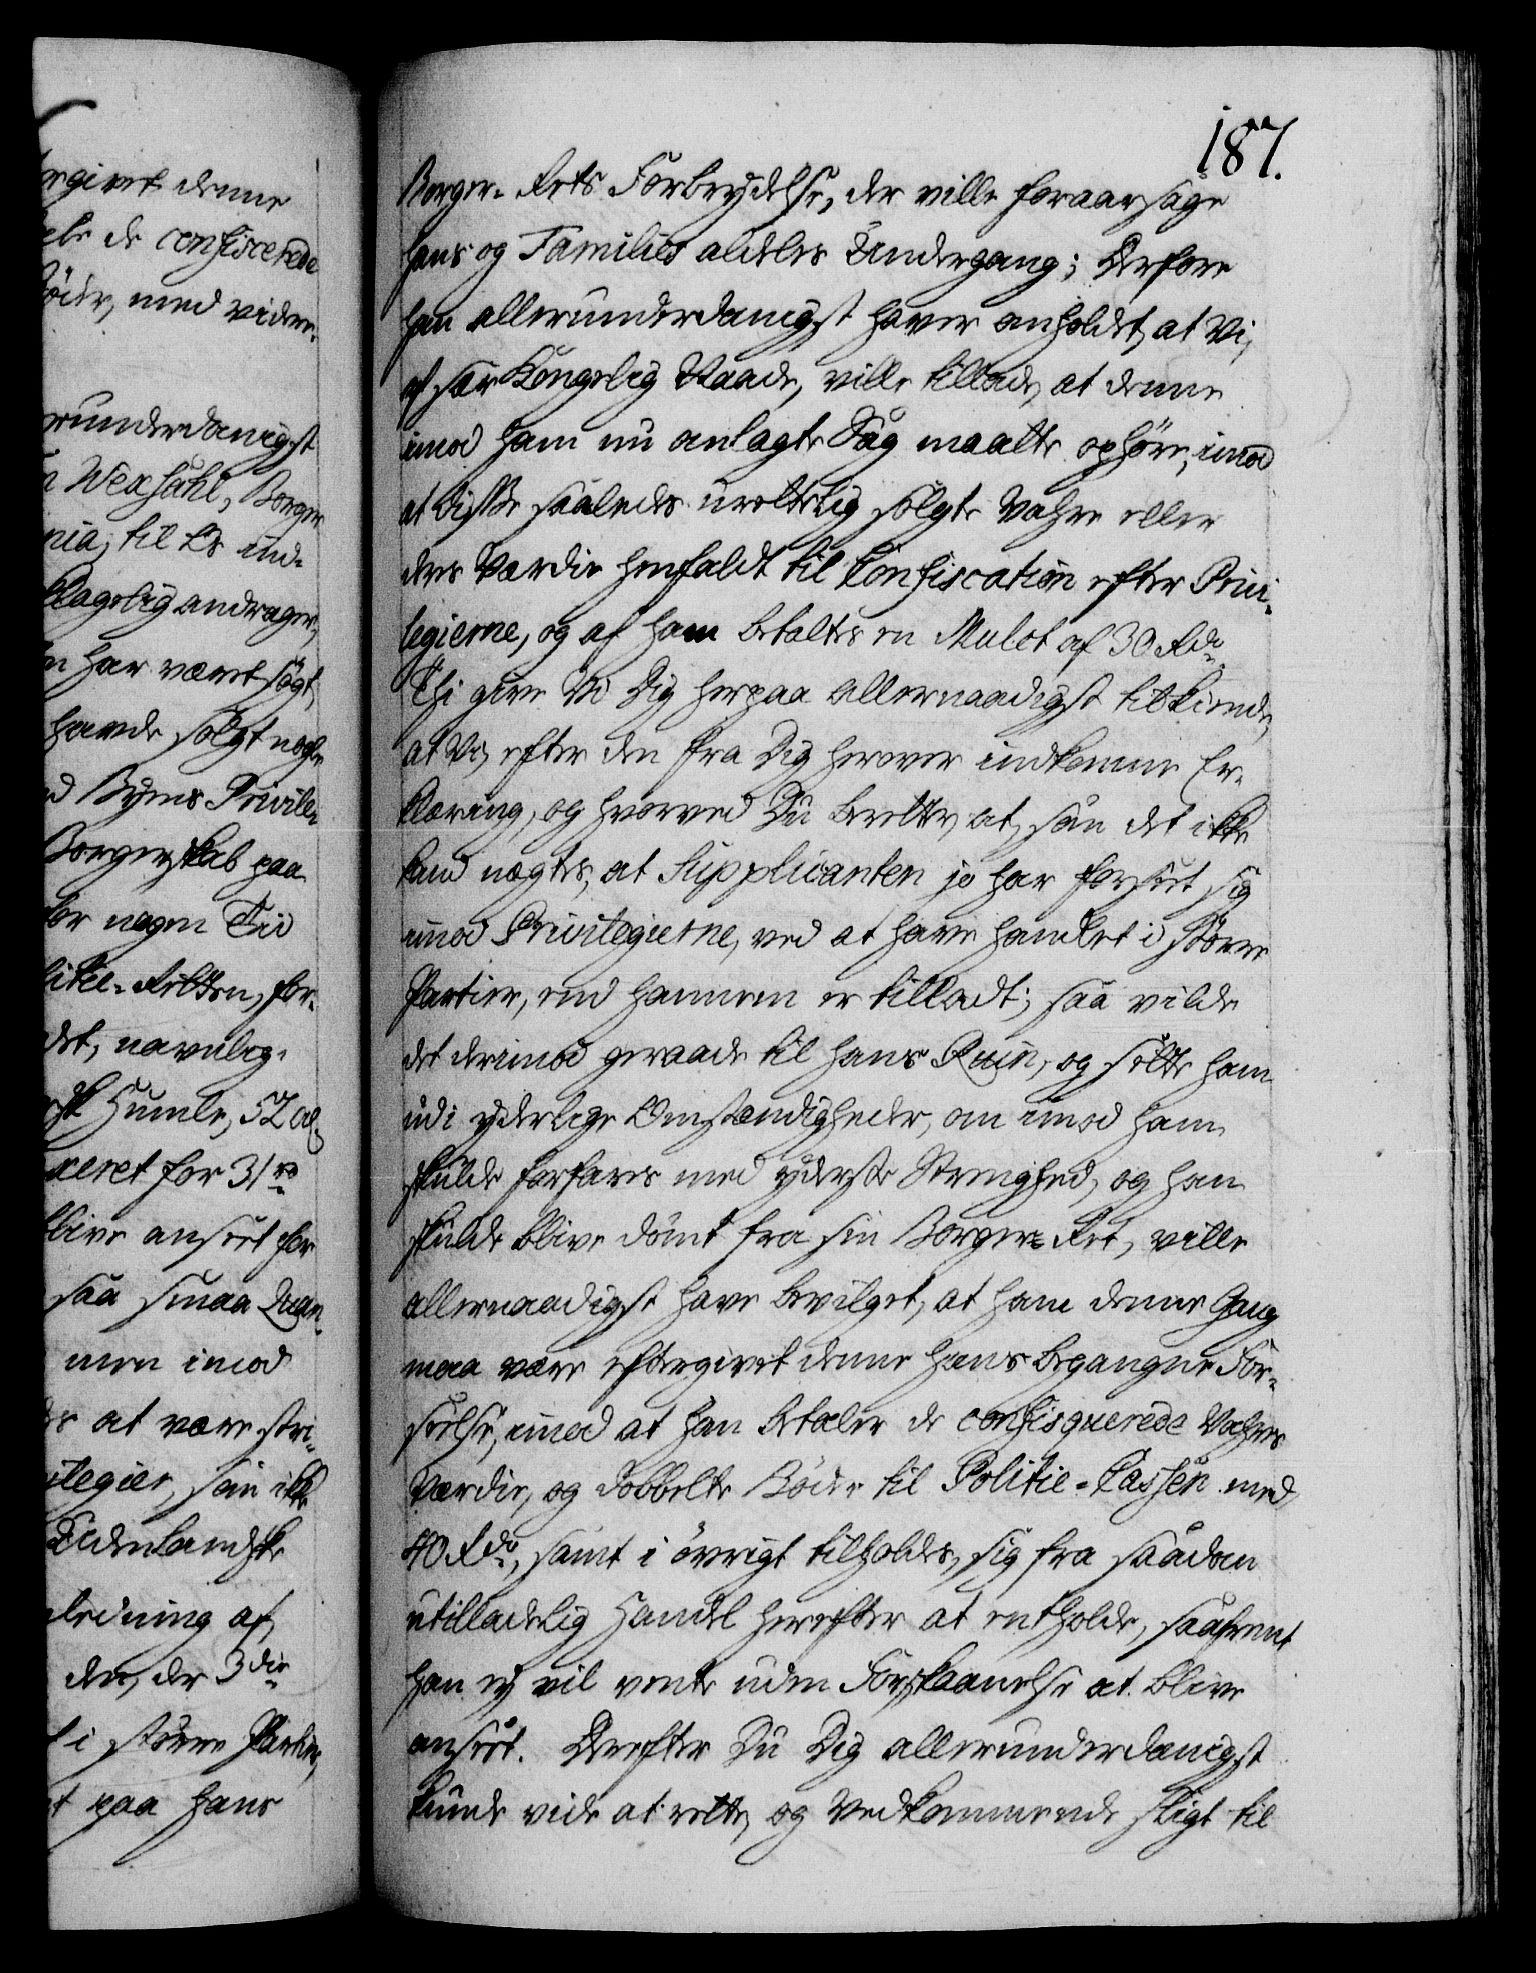 187.
ergivet denne
de confiscerede
Bøder, med videre.
erunderdanigst
Wexsahl, Borger
nia, til Os ind-
klagelig andrager,
har været søgt,
havde solgt nogle
Byens Privile-
Borgerskab paa
nogen Tid
litie-Retten, for-
det, navnlig
Humle, 52 al
xeret for 31 rd
blive anseet for
saa smaa Quan-
men imod
at være stri-
vilegier, saa ikke
Udenlandske
ledning af,
den, der 3die
i større Partier,
paa hans
Borger-Rets Forbrydelse, der ville foraarsage
hans og Families aldeles Undergang; Derfore
han allerunderdanigst haver anholdet, at Vi,
af sær Kongelig Naade, ville tillade, at denne
imod ham nu anlagte Sag maatte ophøre, imod
at disse saaledes urettelig solgte Vahre eller
des Værdie henfaldt til Confiscation efter Privi-
legierne, og af ham betaltes en Mulct af 30 Rdr.
Thi give Vi Dig herpaa allernaadigst tilkiende,
at Vi, efter den fra Dig herover indkomne Er-
klæring, og hvorved Du beretter, at, saa det ikke
kand nægtes, at Supplicanten jo har forseet sig
imod Privilegierne, ved at have handlet i større
Partier, end hannem er tilladt; saa vilde
det derimod geraade til hans Ruin, og sætte ham
udi yderlige Omstændigheder, om imod ham
skulde forfares med yderste Strenghed, og han
skulde blive dømt fra sin Borger-Ret, ville
allernaadigst have bevilget, at ham denne Gang
maa være eftergivet denne hans begangne For-
seelse, imod at han betaler de confisquerede Vahres
Værdie, og dobbelte Bøder til Politie-Cassen med
40 Rdr., samt i øvrigt tilholdes, sig fra saadan
utilladelig Handel herefter at entholde, saafremt
han ej vil vente uden Forskaanelse at blive
anseet. Derefter Du Dig allerunderdanigst
kunde vide at rette, og Vedkommende sligt til